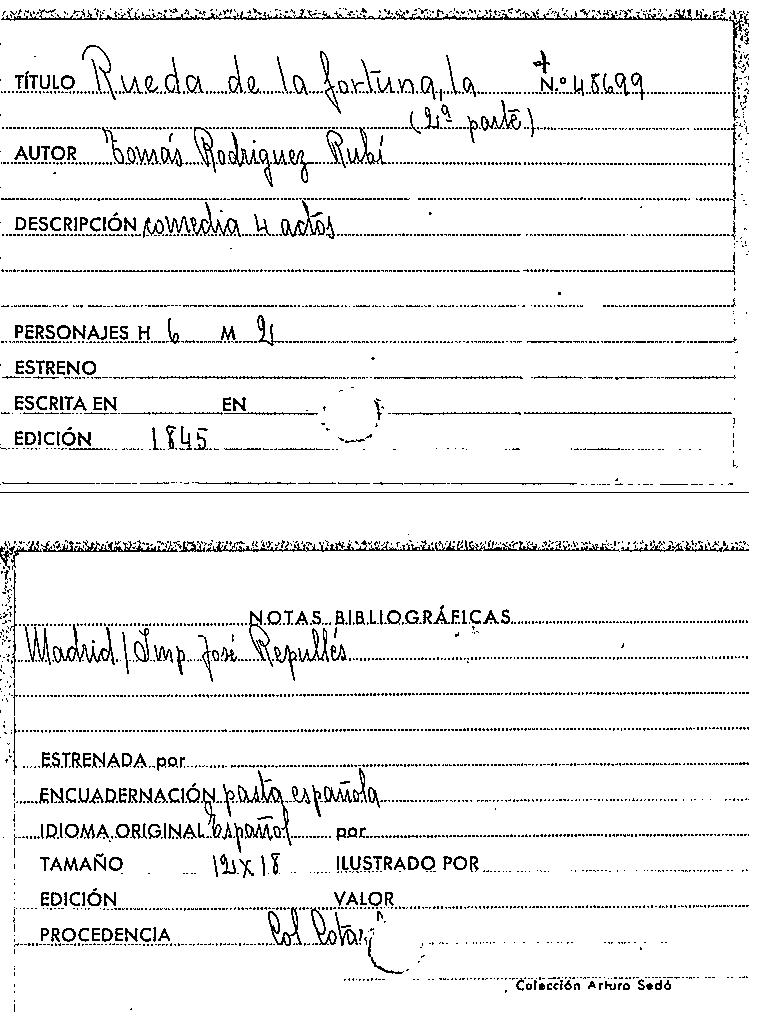 TÍTULO Rueda de la fortuna, la N.º 48699
(2ª parte)
AUTOR Tomás Rodriguez Rubí
DESCRIPCIÓN comedia 4 actos
PERSONAJES H 6 M 2
ESTRENO
ESCRITA EN EN
EDICIÓN 1845
NOTAS BIBLIOGRÁFICAS
Madrid / Imp José Repullés
ESTRENADA por
ENCUADERNACIÓN pasta española
IDIOMA ORIGINAL Español por
TAMAÑO 12 X 18 ILUSTRADO POR
EDICIÓN VALOR
PROCEDENCIA Col
Colección Arturo Sedó